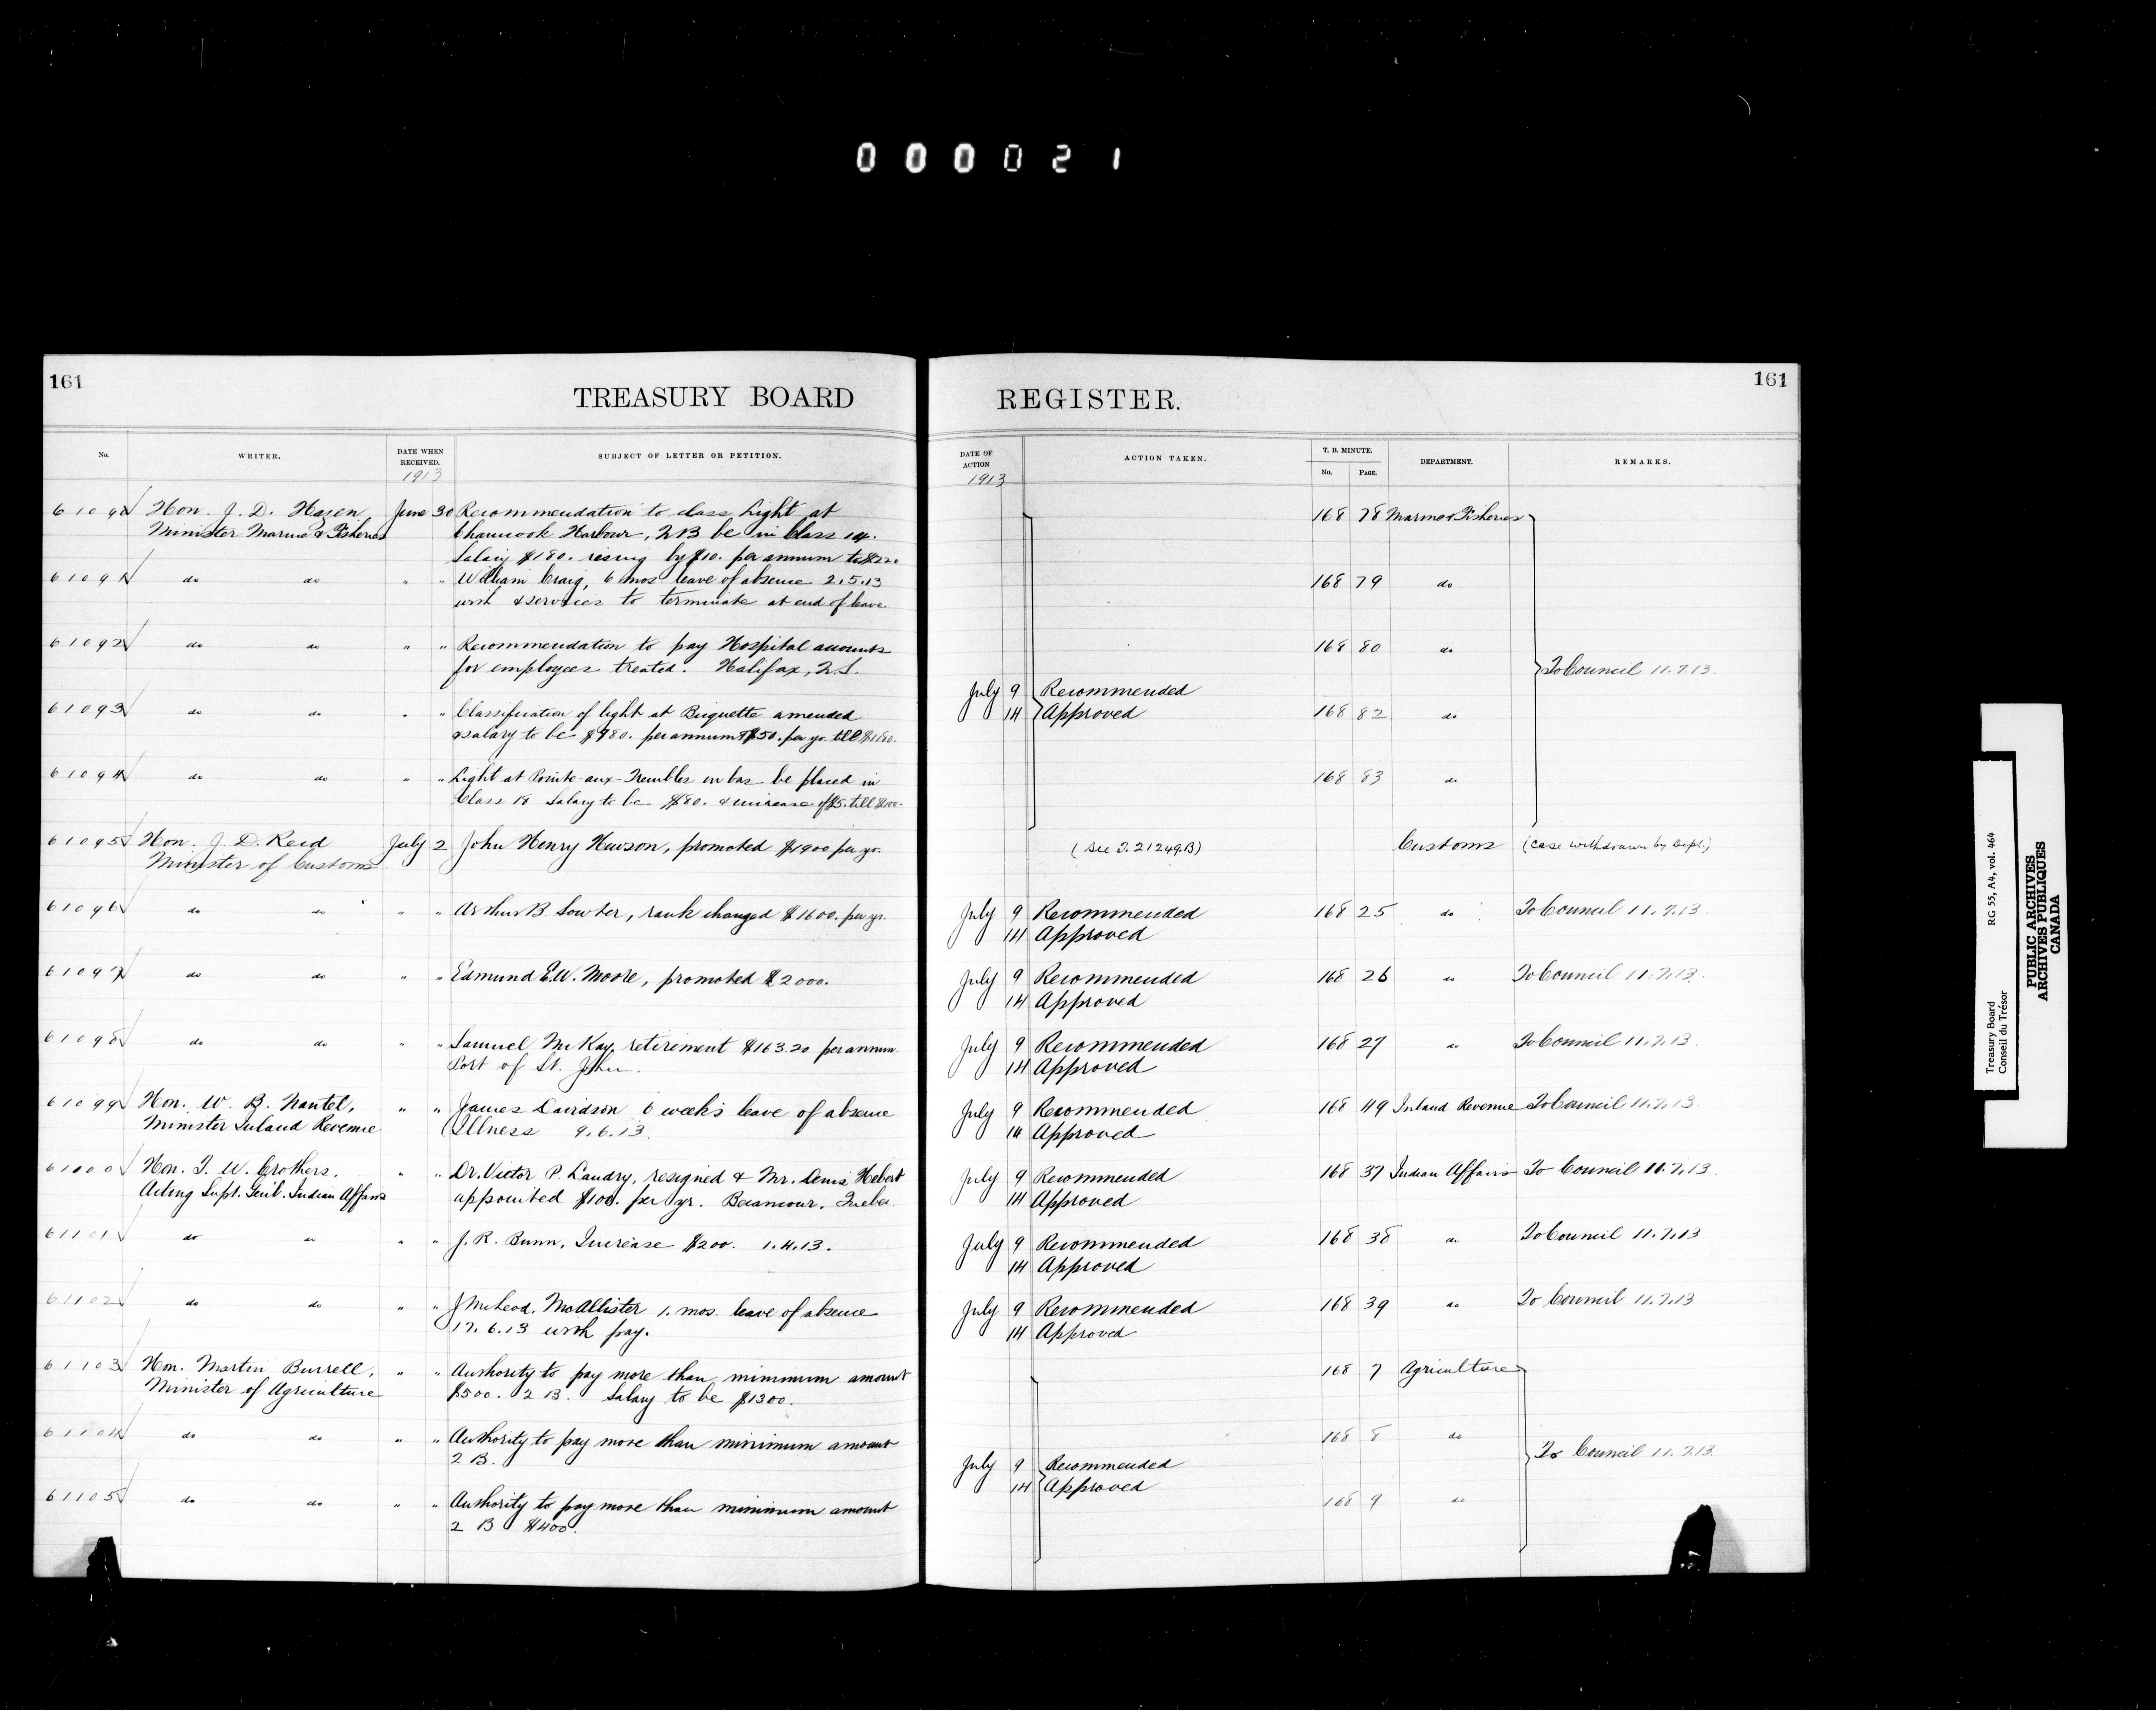 000021
161
TREASURY BOARD
REGISTER.
161
No.
WRITER.
DATE WHEN RECEIVED.
1913
SUBJECT OF LETTER OR PETITION.
DATE OF ACTION
1913
ACTION TAKEN.
T. B. MINUTE.
No.
PAGE.
DEPARTMENT.
REMARKS.
61090 Hon. J. D. Hazen June 30 Recommendation to class Light at 168 78 Marine & Fisheries
Minister Marine & Fisheries Chamcook Harbour, N B be in Class 14.
Salary $180. rising by $10. per annum to $220
61091 do do " " William Craig, 6 mos. leave of absence 2.5.13 168 79 do
with & services to terminate at end of leave
61092 do do " " Recommendation to pay Hospital accounts 168 80 do
for employees treated. Halifax, N.S. To Council 11.7.13.
July 9 Recommended
61093 do do " " Classification of light at Biquette amended 14 Approved 168 82 do
& salary to be $980. per annum & $50. per yr. till $1180.
61094 do do " " Light at Pointe-aux-Trembles en bas be placed in 168 83 do
Class 18 Salary to be $80. & increase of $5. till $100.
61095 Hon. J. D. Reid July 2 John Henry Hewson, promoted $1900 per yr. (See T.21249.B) Customs (Case withdrawn by Dept.)
Minister of Customs
61096 do do " " Arthur B. Sowter, rank changed $1600. per yr. July 9 Recommended 168 25 do To Council 11.7.13.
14 Approved
61097 do do " " Edmund E.W. Moore, promoted $2000. July 9 Recommended 168 26 do To Council 11.7.13.
14 Approved
61098 do do " " Samuel McKay, retirement $163.20 per annum. July 9 Recommended 168 27 do To Council 11.7.13.
Port of St. John. 14 Approved
61099 Hon. W. B. Nantel, " " James Davidson 6 weeks leave of absence July 9 Recommended 168 49 Inland Revenue To Council 11.7.13.
Minister Inland Revenue Illness 9.6.13. 14 Approved
Hon. T. W. Crothers, " " Dr. Victor P. Landry, resigned & Mr. Denis Hebert July 9 Recommended 168 37 Indian Affairs To Council 11.7.13.
Acting Supt. Genl. Indian Affairs appointed $100. per yr. Becancour, Quebec. 14 Approved
61101 do do " " J. R. Bunn, Increase $200. 1.4.13. July 9 Recommended 168 38 do To Council 11.7.13
14 Approved
61102 do do " " J McLeod, McAllister 1. mos. leave of absence July 9 Recommended 168 39 do To Council 11.7.13
17.6.13 with pay. 14 Approved
61103 Hon. Martin Burrell, " " Authority to pay more than minimum amount 168 7 Agriculture
Minister of Agriculture $500. 2 B. Salary to be $1300.
61104 do do " " Authority to pay more than minimum amount 168 8 do
2 B. July 9 Recommended To Council 11.7.13.
14 Approved
61105 do do " " Authority to pay more than minimum amount 168 9 do
2 B $400.
Treasury Board
Conseil du Trésor
RG 55, A4, vol. 464
PUBLIC ARCHIVES
ARCHIVES PUBLIQUES
CANADA